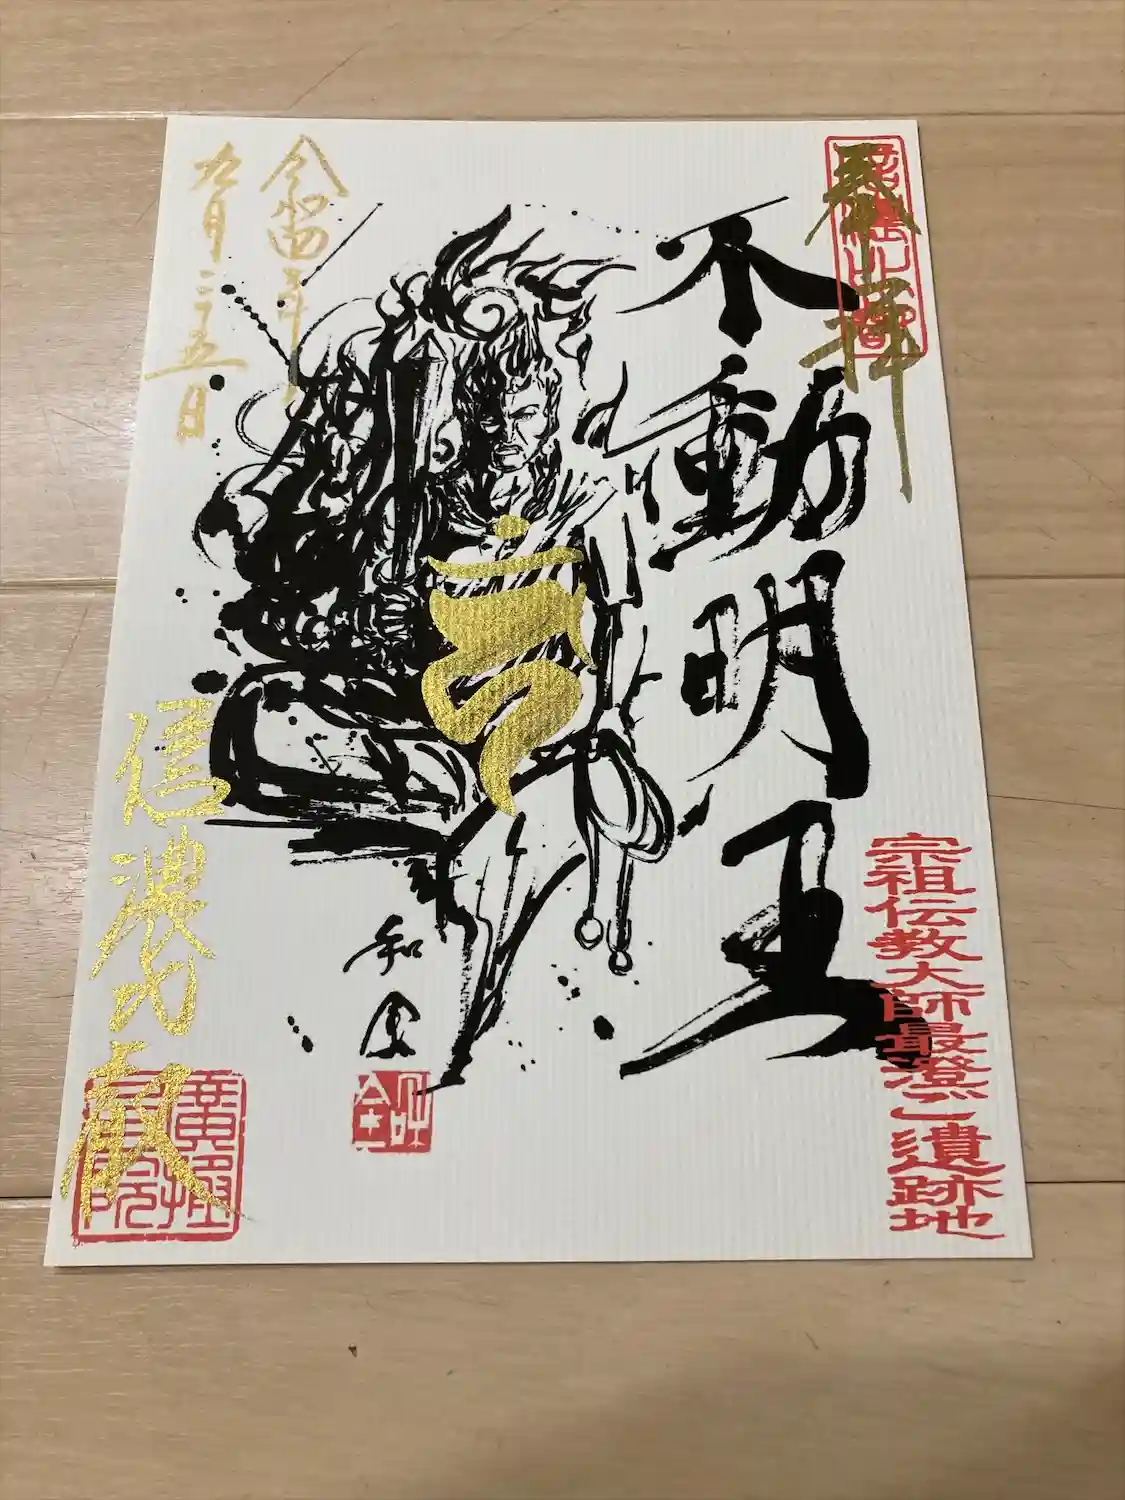 奉拝
不動明王
宗祖伝教大師最澄ご遺跡地
令和四年
九月二十五日
和全
信濃比叡
廣拯院